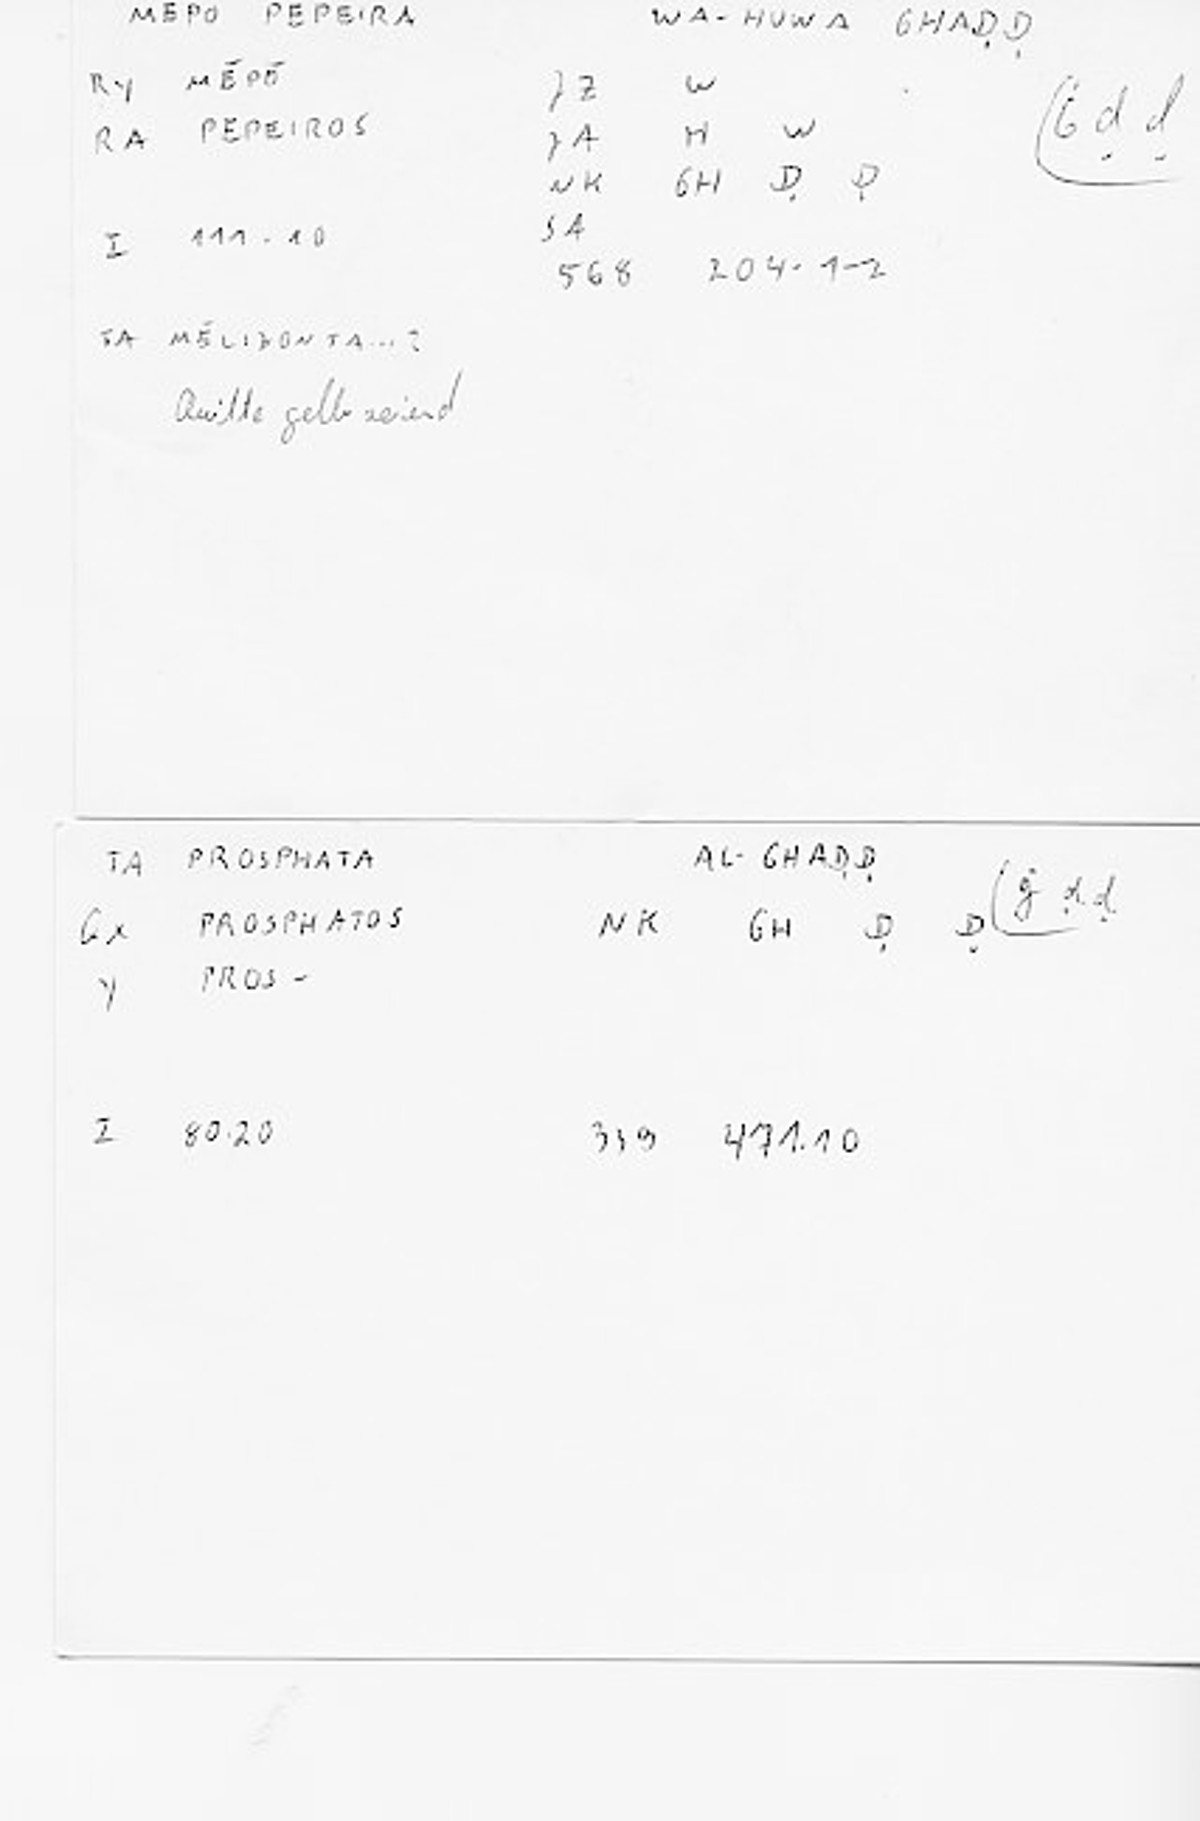 MEPO PEPEIRA WA-HUWA GHAḌḌ
Ry MĒPŌ JZ W
RA PEPEIROS JA H W (Ġ ḍ ḍ
NK GH Ḍ Ḍ
I 111.10 SA
568 204.1-2
TA MĒLIZONTA...?
Quitte gelb seiend
TA PROSPHATA AL-GHAḌḌ
Gx PROSPHATOS NK GH Ḍ Ḍ (ġ ḍ ḍ
y PROS-
I 80.20 339 471.10